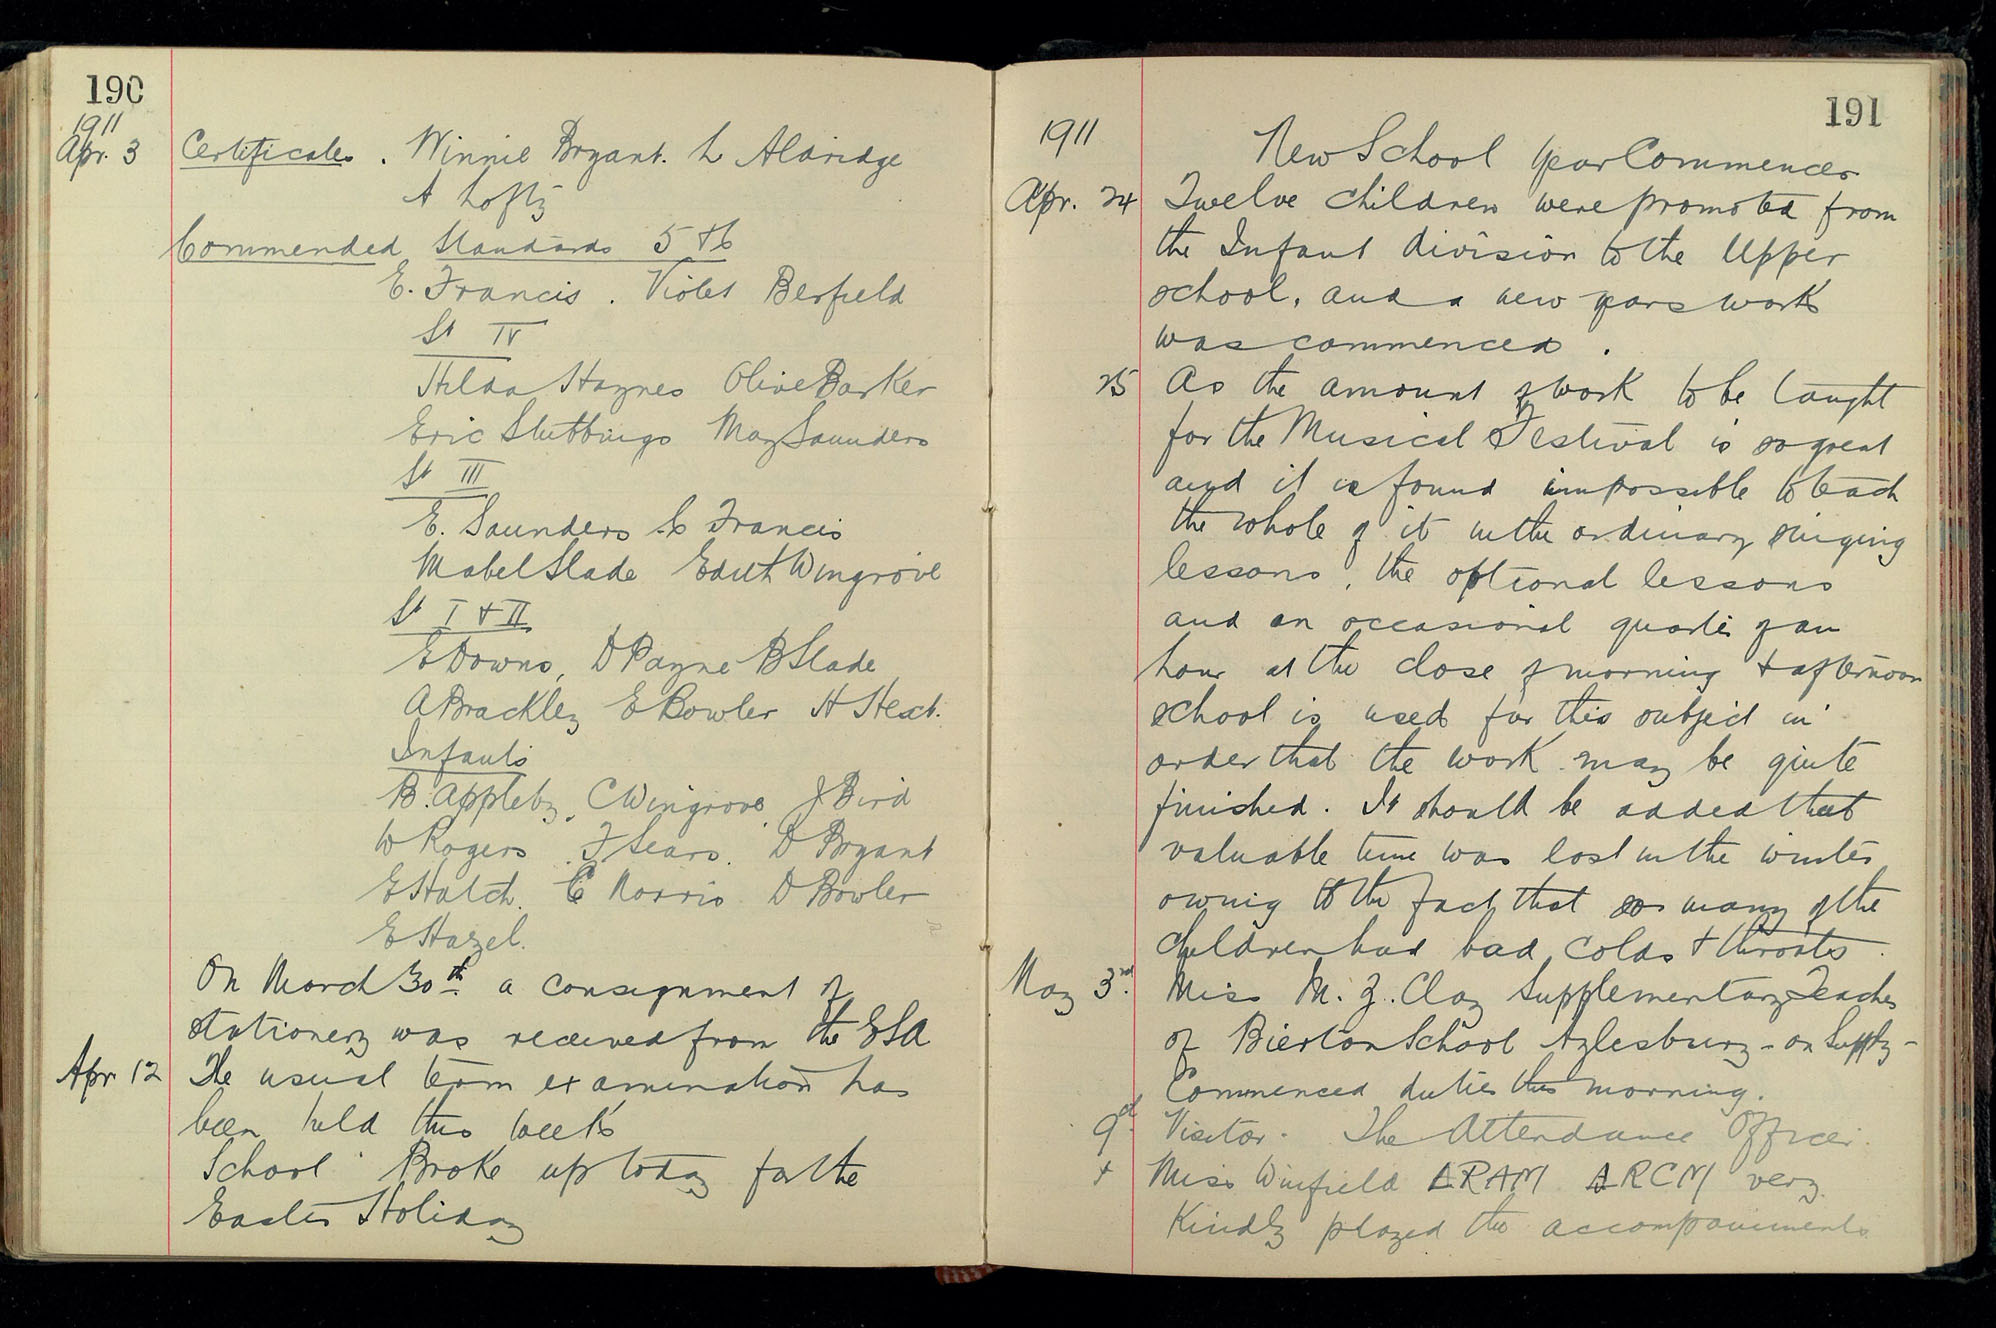 190
1911
Apr. 3 Certificates. Winnie Bryant. L Aldridge
A Lofty
Commended Standards 5 + 6
E. Francis. Violet Berfield
St IV
Hilda Haynes Olive Barker
Eric Stubbings May Saunders
St III
E. Saunders C Francis
Mabel Slade Edith Wingrove
St I + II
E Downs, D Payne B Slade
A Brackley E Bowler H Hext.
Infants
B. Appleby, C Wingrove, J Bird
W Rogers. F Sears. D Bryant
E Hatch. C Norris D Bowler
E Hazel.
On March 30th a consignment of
stationery was received from the ESA
Apr 12 The usual term examination has
been held this week
School Broke up today for the
Easter Holiday
191
1911
New School Year Commences
Apr. 24 Twelve children were promoted from
the Infant division to the Upper
school, and a new years work
was commenced.
25 As the amount of work to be taught
for the Musical Festival is so great
and it is found impossible to teach
the whole of it in the ordinary singing
lessons, the optional lessons
and an occasional quarter of an
hour at the close of morning + afternoon
school is used for this subject in
order that the work may be quite
finished. It should be added that
valuable time was lost in the winter
owing to the fact that so many of the
children had bad colds + throats.
May 3rd. Miss M. Z. Clay Supplementary Teacher
of Bierton School Aylesbury - on Supply -
Commenced duties this morning.
9th Visitor. The Attendance Officer.
+ Miss Winfield ARAM ARCM very
kindly played the accompaniments